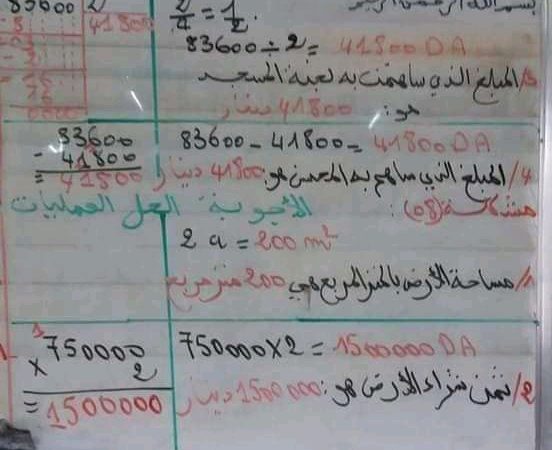 بسم الله الرحمن الرحيم
2/4 = 1/2
83600 2
41800
0000
83600 ÷ 2 = 41800 DA
3/ المبلغ الذي ساهمت به لجنة المسجد
هو: 41800 دينار
83600 - 41800 = 41800 DA
83600
- 41800
= 41800
4/ المبلغ الذي ساهم به المحسن هو: 41800 دينار
مشكلة (08): الأجوبة العمليات
2 a = 200 m²
1/ مساحة الأرض بالمتر المربع هي 200 متر مربع
750000 X 2 = 1500000 DA
1
750000
x 2
= 1500000
2/ ثمن شراء الأرض هو: 1500000 دينار